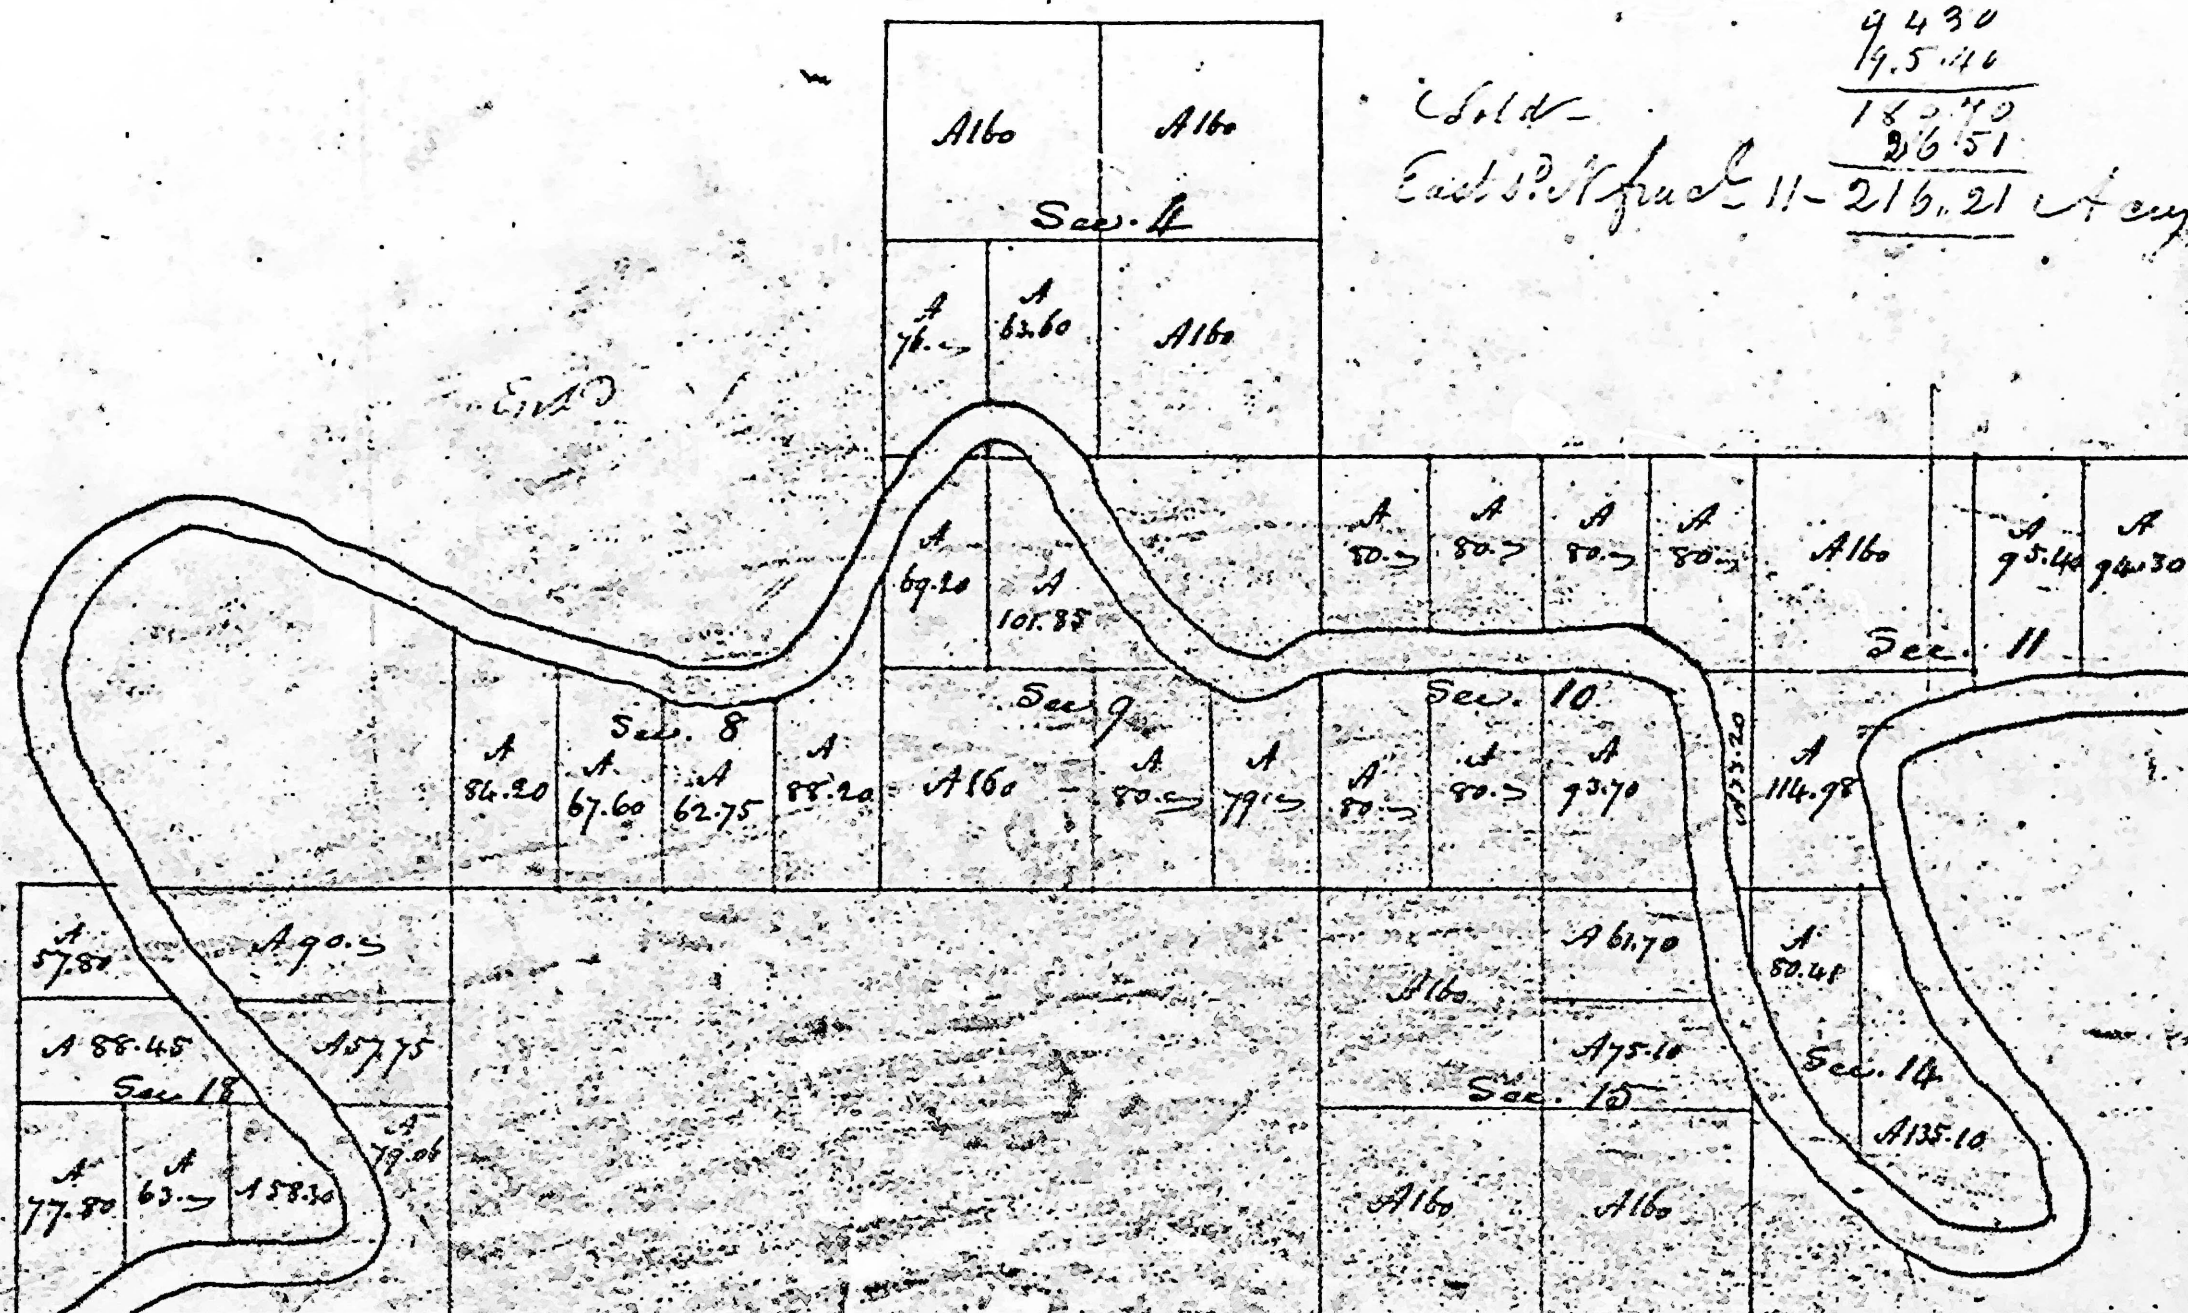 94 30
95.40
26.51
East 11 - 216.21
A160
A160
Sec. 4
A
76.
A
63.60
A160
A
69.20
A
101.85
A
80.
A
80.
A
80.
A
80.
A160
A
95.40
A
94.30
Sec. 11
Sec. 8
Sec. 9
Sec. 10
A
84.20
A
67.60
A
62.75
A
88.20
A160
A
80.
A
79.
A
80.
A
80.
A
93.70
A33.20
A
114.98
A
57.80
A 90.
A160
A 61.70
A
80.48
A 88.45
A57.75
A75.10
Sec 18
Sec. 15
Sec. 14
A
77.80
A
63.
A 58.30
A
79.06
A160
A160
A135.10